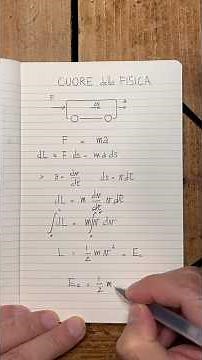 CUORE della FISICA
F → m → a
F = ma
dL = F ds = ma ds
→ a = dv/dt ds = v dt
dL = m dv/dt v dt
∫ dL = m∫ v dv
L = 1/2 m v² = Ec
Ec = 1/2 m